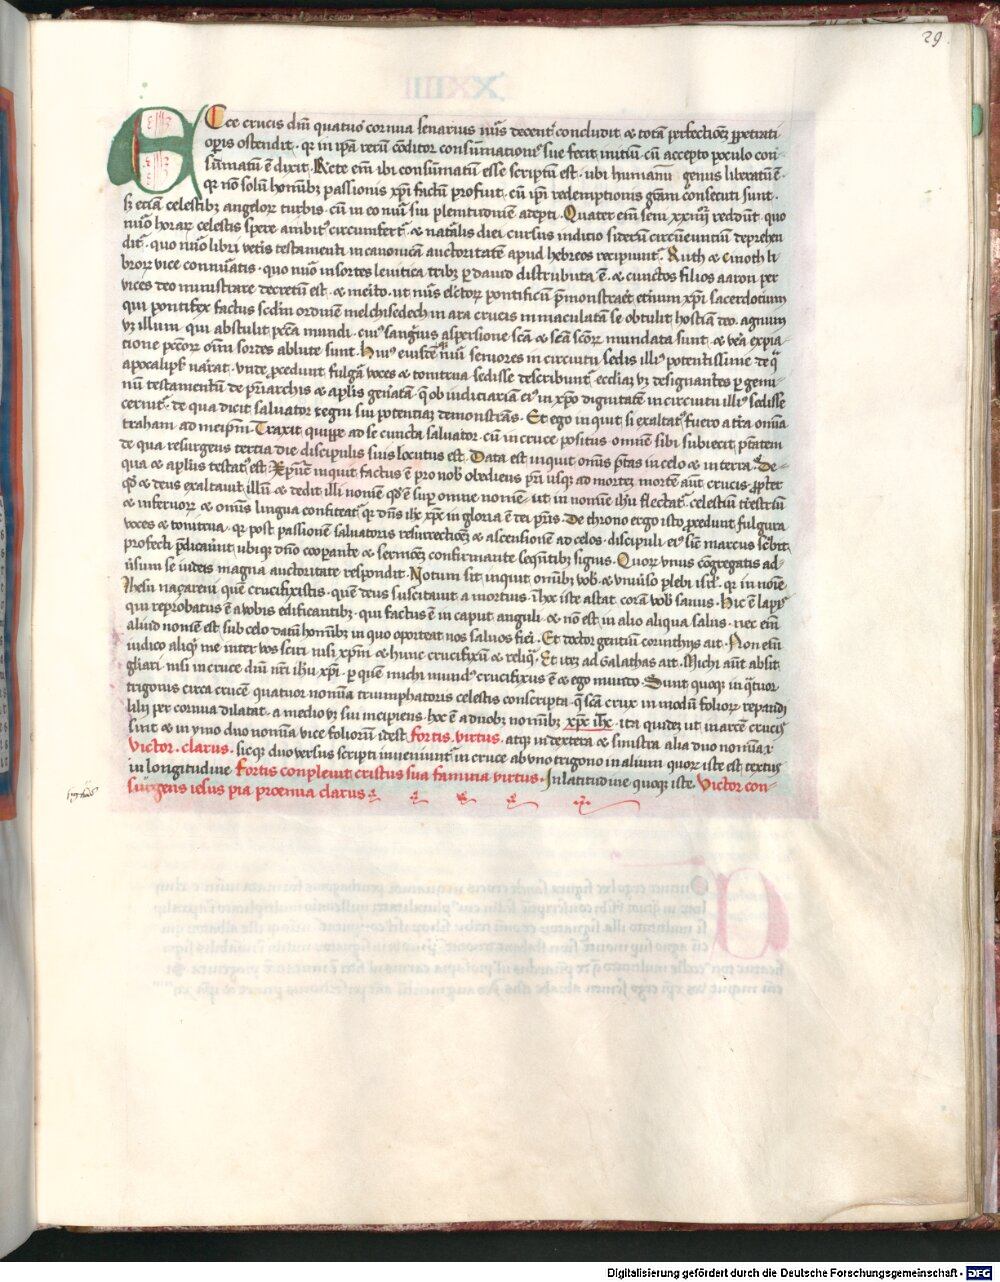 29
Ecce crucis dnī quatuor cornua senarius nūs decent concludit & totā perfectionē ppetrati
opis ostendit. qr in ipa rerū cōditor consūmationē sue fecit initiū cū accepto poculo con-
sūmatū ē dixit. Recte em ibi consūmatū esse scriptū est. ubi humanū genus liberatū ē.
qr nō solū hominibz passionis xpi factū profuit. cū ipi redemptionis grām consecuti sunt.
sz etiam celestibz angelorz turbis. cū in eo nūi sui plenitudinē adepti. Quater em seni xxiiij reddūt. quo
nūo horarz celestis spere ambit circumfert. & natalis diei cursus inditio siderū circueuntiū deprehen
dit. quo nūo libri vetis testamenti in canonicā auctoritatē apud hebreos recipiunt. Ruth & cinoth li
brorz vice connūatis. quo nūo in sortes leuitica tribz p dauid distributa ē. & cunctos filios aaron per
vices deo ministrare decretū est. & merito. ut nūs electorz pontificū pmonstraret eternū xpi sacerdotium
qui pontifex factus scdm ordinem melchisedech in ara crucis inmaculatā se obtulit hostiā deo. agnum
vz illum. qui abstulit pcca mundi. cui sanguinis aspersione scā & scā scorz mundata sunt. & vera expia-
tione pccorz oīm sordes ablute sunt. Hui euisdē nūi seniores in circuitu sedis illi potentissime de q
apocalips narrat. vnde pcedunt fulgura voces & tonitrua. sedisse describunt ecclīaz vz designantes p gemi-
nū testamentū de priarchis & aplis genatā. q ob iudiciariā ei in xpo dignitatē in circuitu illi sedisse
cernit. de qua dicit saluator regni sui potentiaz demonstrās. Et ego inquit si exaltat fuero a tra omīa
traham ad meipm. Traxit quippe ad se cuncta saluator. cū in cruce positus omne sibi subiecit ptatem
de qua resurgens tercia die discipulis suis locutus est. Data est inquit omīs ptas in celo & in terra. De-
qua & aplus testat est. xpūc inquit factus ē pro nob obediens pri usqz ad mortez mortē aut crucis. propter
qd & deus exaltauit illū. & dedit illi nomē qd ē sup omne nomē. ut in nomīe ihu flectat celestiū trestriū
& infernorz & omīs lingua confiteat qr dns ihc xpc in gloria ē dei pris. De throno ergo isto pcedunt fulgura
voces & tonitrua. qr post passionē saluatoris resurrectionē & ascensionē ad celos. discipuli ei sic marcus scbit
profecti pdicauit ubiqz dno coopante & sermonē confirmante seqntibz signis. Quorz vnus cōgregatis ad-
ūsum se iudeis magna auctoritate respondit. Notum sit inquit omībz vob & vniūso plebi isrl. qr in noīe
ihesu nazareni quē crucifixistis. quē deus suscitauit a mortuis. ī hoc iste astat corā vob sanus. Hic ē lapis
qui reprobatus ē a vobis edificantibz. qui factus ē in caput anguli. & nō est in alio aliqua salus. nec em
aliud nomē est sub celo datū hominibz in quo oporteat nos saluos fieri. Et doctor gentiū corinthijs ait. Non em
iudico aliqd me inter vos sciri nisi xpm & hunc crucifixū & reliq. Et itez ad Galathas ait. Michi aut absit
gliari. nisi in cruce dnī nri ihu xpi. p quē michi mund crucifixus ē & ego mundo. Sunt quoqz in qtuor
trigonis circa crucē quatuor nomīa triumphatoris celestis conscripta. q scā crux in modū foliorz repandi
lilij per cornua dilatat. a medio vz sui incipiens. hoc ē a duobz nomībz xpc ihc. ita quidez ut in arce crucis
sint & in ymo duo nomīa vice foliorū idest fortis. virtus. atqz in dextera & sinistra alia duo nomīa .i.
victor. clarus. sicqz duo versus scripti inueniunt in cruce ab vno trigono in alium quorz iste est textus
in longitudine fortis conpleuit cristus sua famina virtus. In latitudine quoqz iste. victor con-
surgens iesus pia proemia clarus
Digitalisierung gefördert durch die Deutsche Forschungsgemeinschaft - DFG